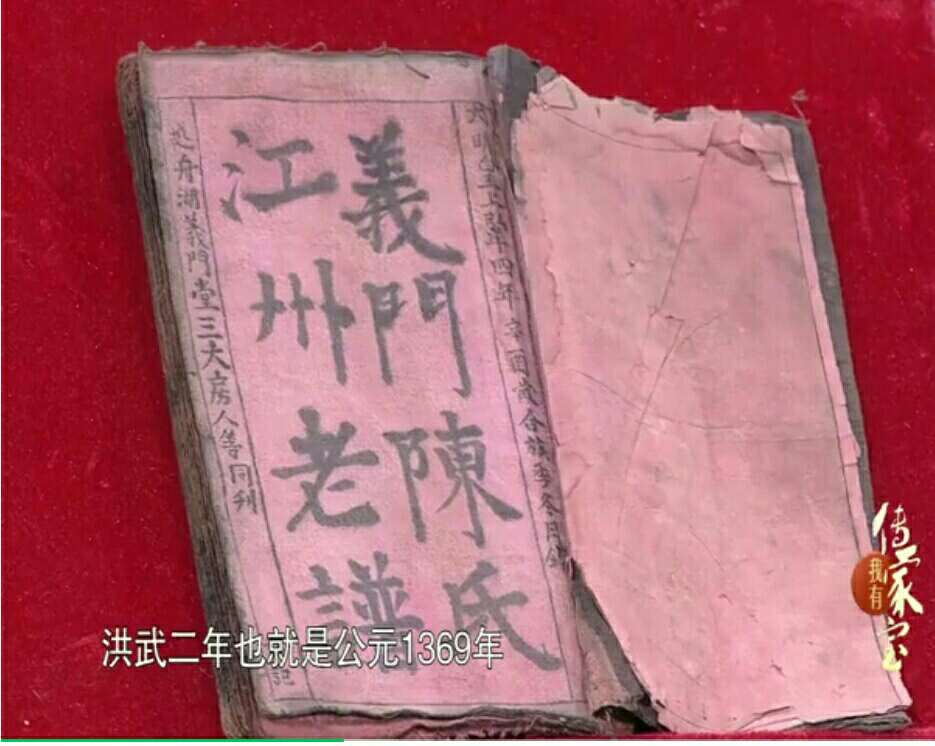 四年辛酉歲合族季冬月
義門陳氏
江州老譜
舟湖義門堂三大房人等同刊
記
洪武二年也就是公元1369年
我有
傳家宝